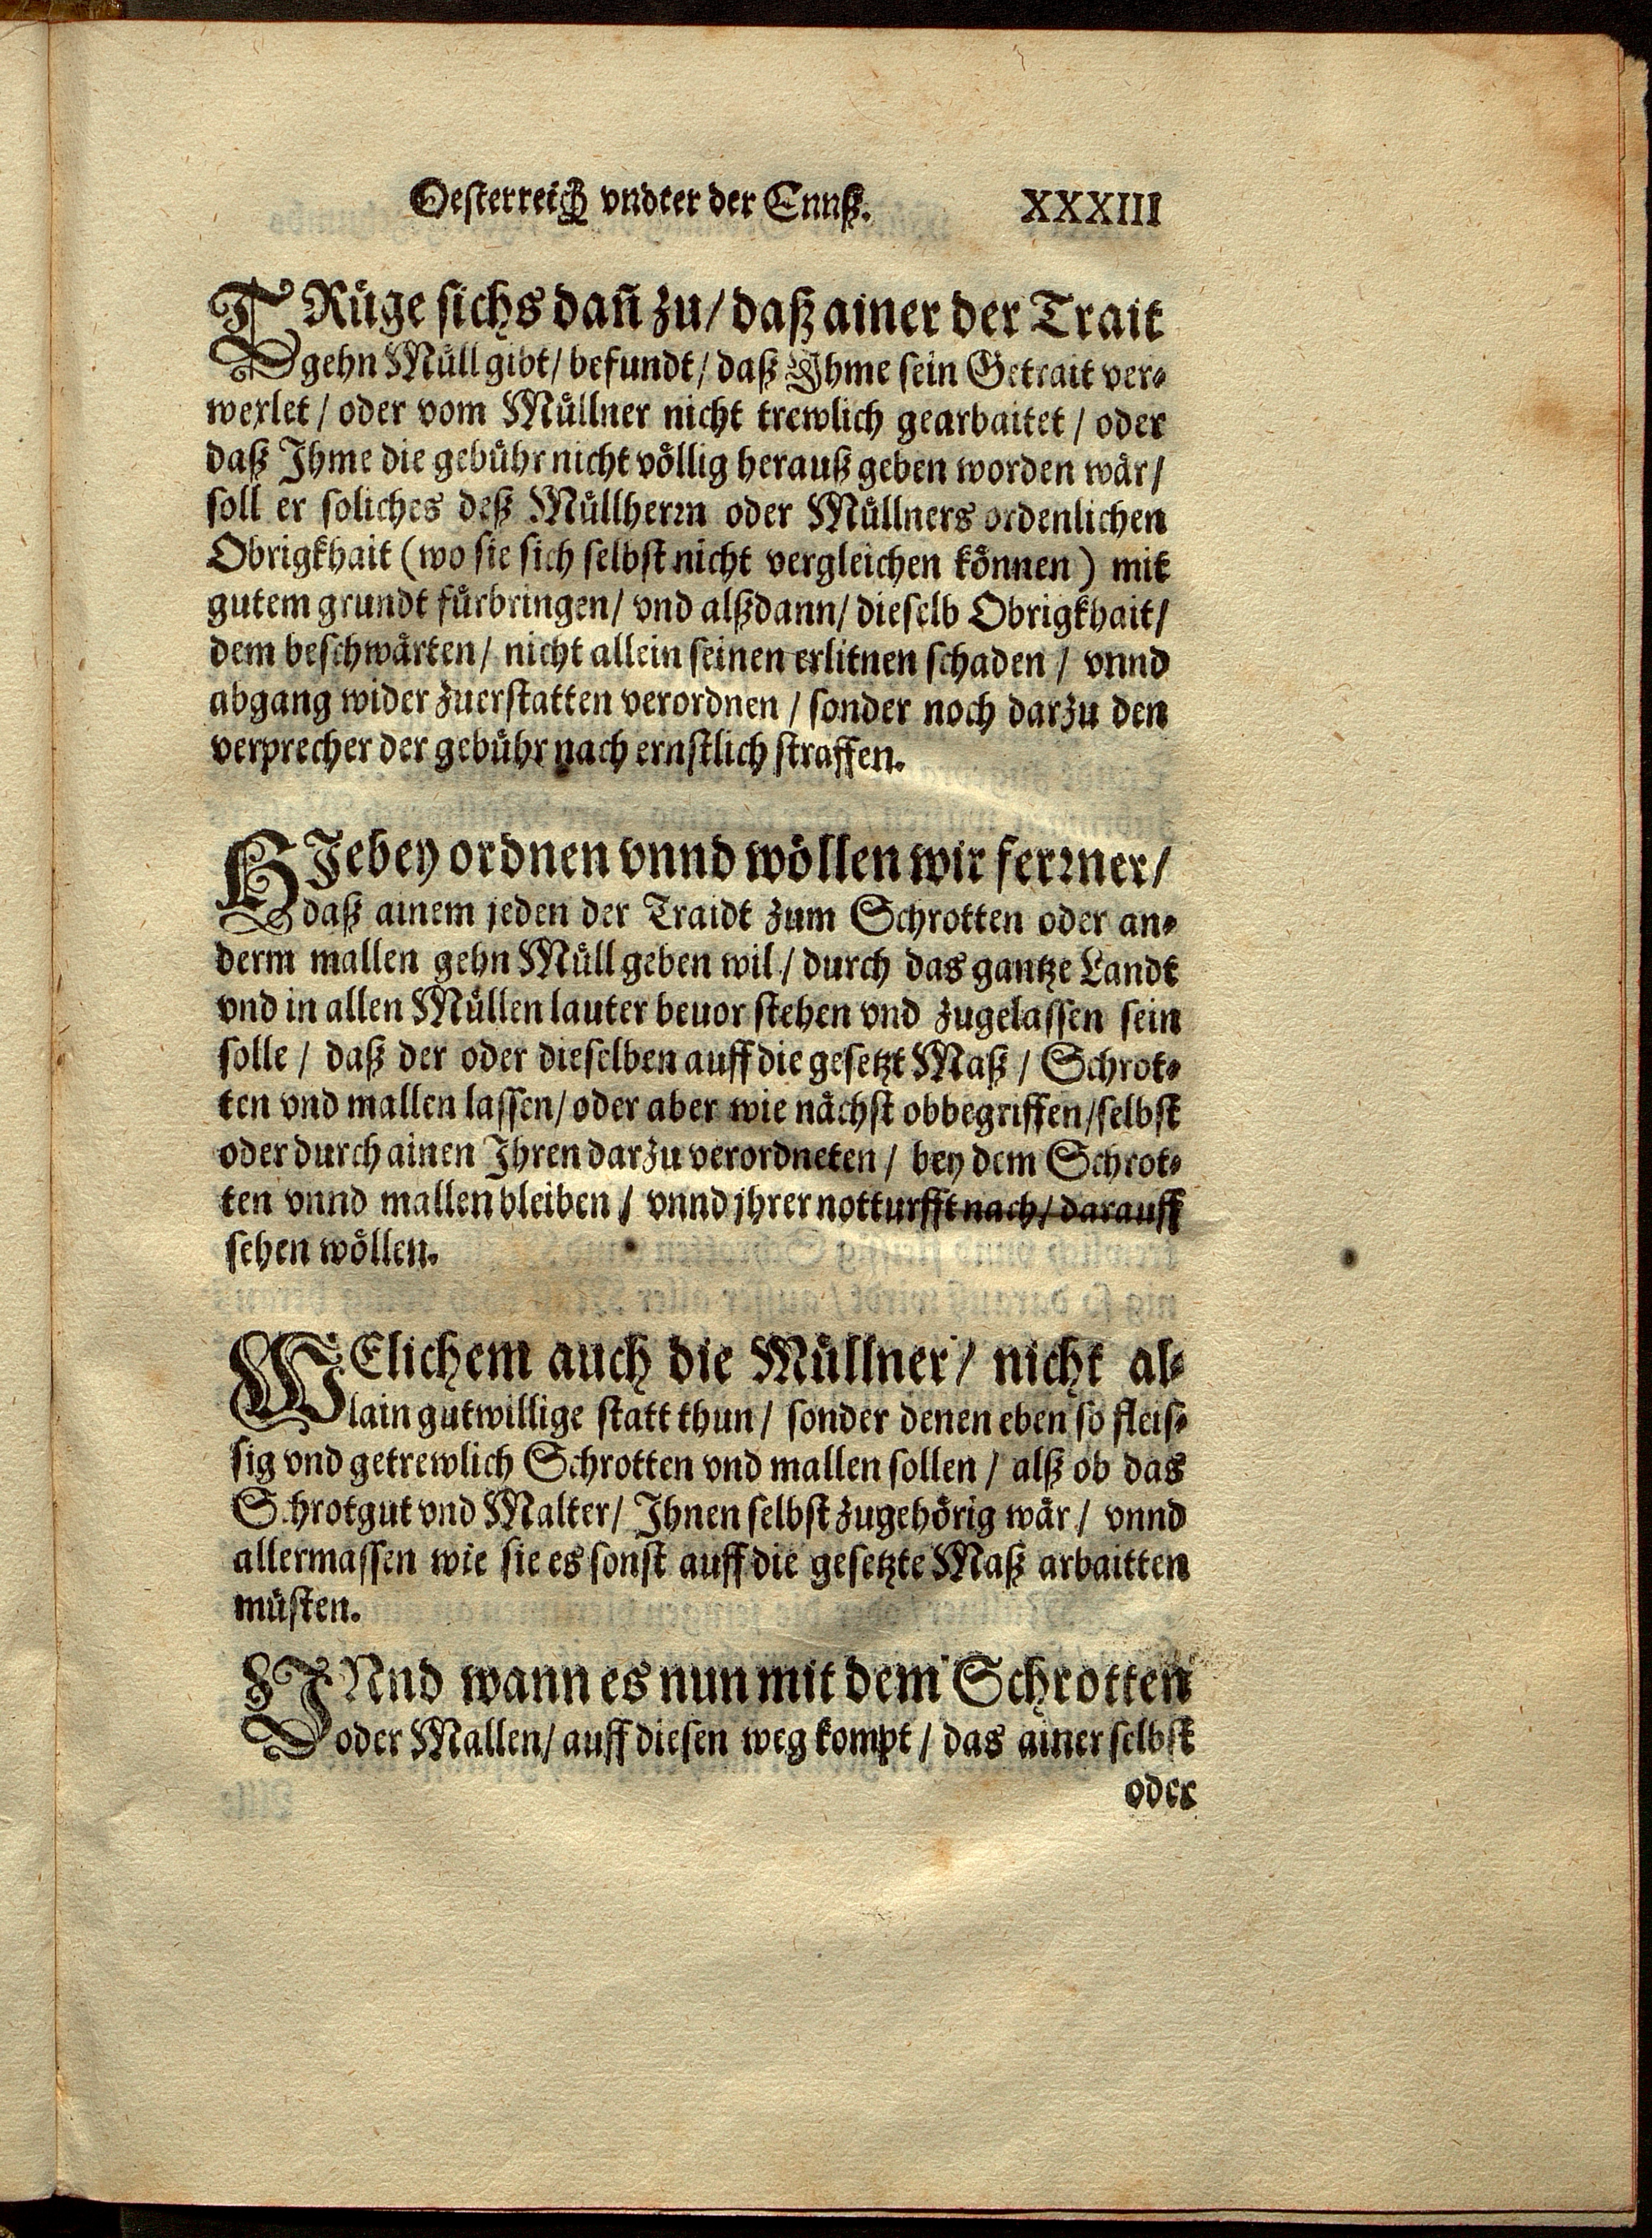 Oesterreich vndter der Ennß. XXXIII
TRüge sichs dañ zu/ daß ainer der Trait
gehn Müll gibt/ befundt/ daß Ihme sein Getrait ver-
wexlet / oder vom Müllner nicht trewlich gearbaitet / oder
daß Ihme die gebühr nicht völlig herauß geben worden wär/
soll er soliches deß Müllherrn oder Müllners ordenlichen
Obrigkhait (wo sie sich selbst nicht vergleichen können) mit
gutem grundt fürbringen/ vnd alßdann/ dieselb Obrigkhait/
dem beschwärten/ nicht allein seinen erlitnen schaden / vnnd
abgang wider zuerstatten verordnen / sonder noch darzu den
verprecher der gebühr nach ernstlich straffen.
HIebey ordnen vnnd wöllen wir ferrner/
daß ainem jeden der Traidt zum Schrotten oder an-
derm mallen gehn Müll geben wil / durch das gantze Landt
vnd in allen Müllen lauter beuor stehen vnd zugelassen sein
solle / daß der oder dieselben auff die gesetzt Maß / Schrot-
ten vnd mallen lassen/ oder aber wie nächst obbegriffen/ selbst
oder durch ainen Ihren darzu verordneten / bey dem Schrot-
ten vnnd mallen bleiben / vnnd jhrer notturfft nach/ darauff
sehen wöllen.
WElichem auch die Müllner/ nicht al-
lain gutwillige statt thun / sonder denen eben so fleis-
sig vnd getrewlich Schrotten vnd mallen sollen / alß ob das
Schrotgut vnd Malter/ Ihnen selbst zugehörig wär / vnnd
allermassen wie sie es sonst auff die gesetzte Maß arbaitten
müsten.
VNnd wann es nun mit dem Schrotten
oder Mallen/ auff diesen weg kompt / das ainer selbst
oder